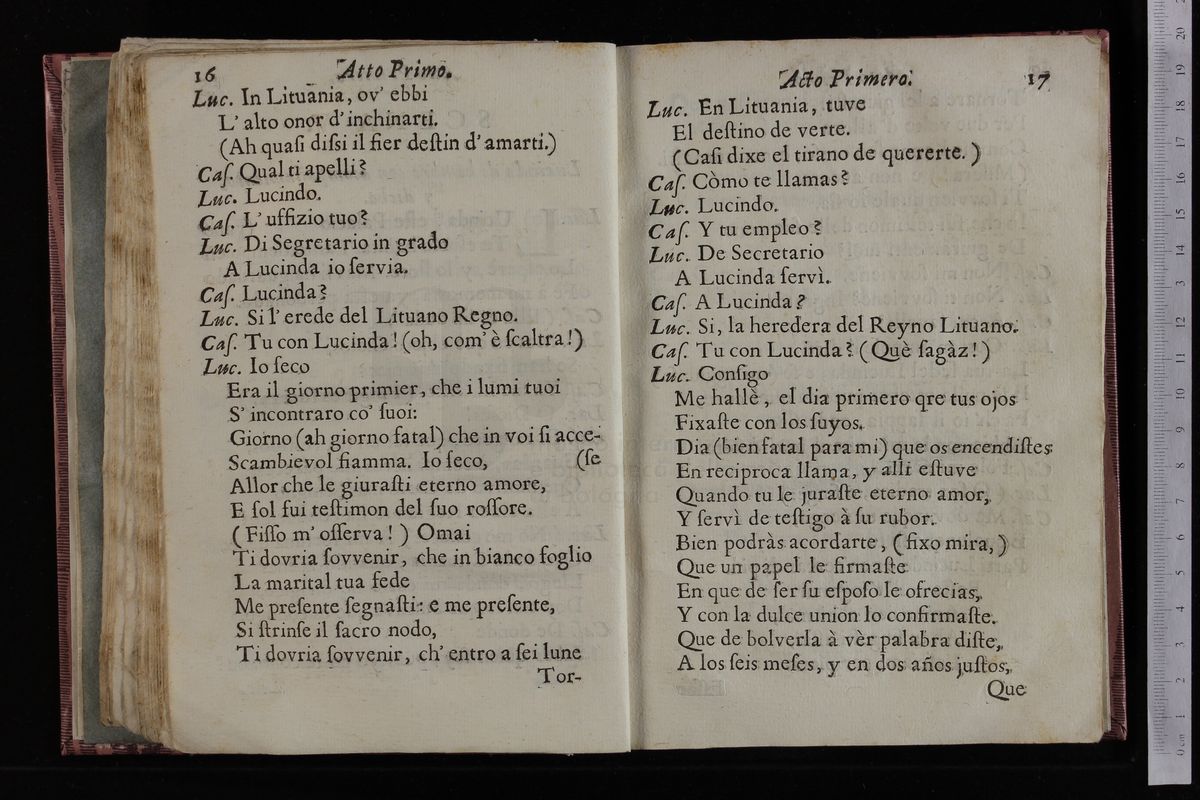 16 Atto Primo.
Luc. In Lituania, ov' ebbi
L' alto onor d'inchinarti.
(Ah quaſi diſsi il fier deſtin d' amarti.)
Caſ. Qual ti apelli?
Luc. Lucindo.
Caſ. L' uffizio tuo?
Luc. Di Segretario in grado
A Lucinda io ſervia.
Caſ. Lucinda?
Luc. Si l' erede del Lituano Regno.
Caſ. Tu con Lucinda! (oh, com' è ſcaltra!)
Luc. Io ſeco
Era il giorno primier, che i lumi tuoi
S' incontraro co' ſuoi:
Giorno (ah giorno fatal) che in voi ſi acce-
Scambievol fiamma. Io ſeco, (ſe
Allor che le giuraſti eterno amore,
E ſol fui teſtimon del ſuo roſſore.
(Fiſſo m' oſſerva!) Omai
Ti dovria ſovvenir, che in bianco foglio
La marital tua fede
Me preſente ſegnaſti: e me preſente,
Si ſtrinſe il ſacro nodo,
Ti dovria ſovvenir, ch' entro a ſei lune
Tor-
Acto Primero. 17
Luc. En Lituania, tuve
El deſtino de verte.
(Caſi dixe el tirano de quererte.)
Caſ. Còmo te llamas?
Luc. Lucindo.
Caſ. Y tu empleo?
Luc. De Secretario
A Lucinda ſervì.
Caſ. A Lucinda?
Luc. Si, la heredera del Reyno Lituano.
Caſ. Tu con Lucinda? (Què ſagàz!)
Luc. Conſigo
Me hallè, el dia primero qre tus ojos
Fixaſte con los ſuyos.
Dia (bien fatal para mi) que os encendiſtes
En reciproca llama, y alli eſtuve
Quando tu le juraſte eterno amor,
Y ſervì de teſtigo à ſu rubor.
Bien podràs acordarte, (fixo mira,)
Que un papel le firmaſte
En que de ſer ſu eſpoſo le ofrecias,
Y con la dulce union lo confirmaſte.
Que de bolverla à vèr palabra diſte,
A los ſeis meſes, y en dos años juſtos,
Que